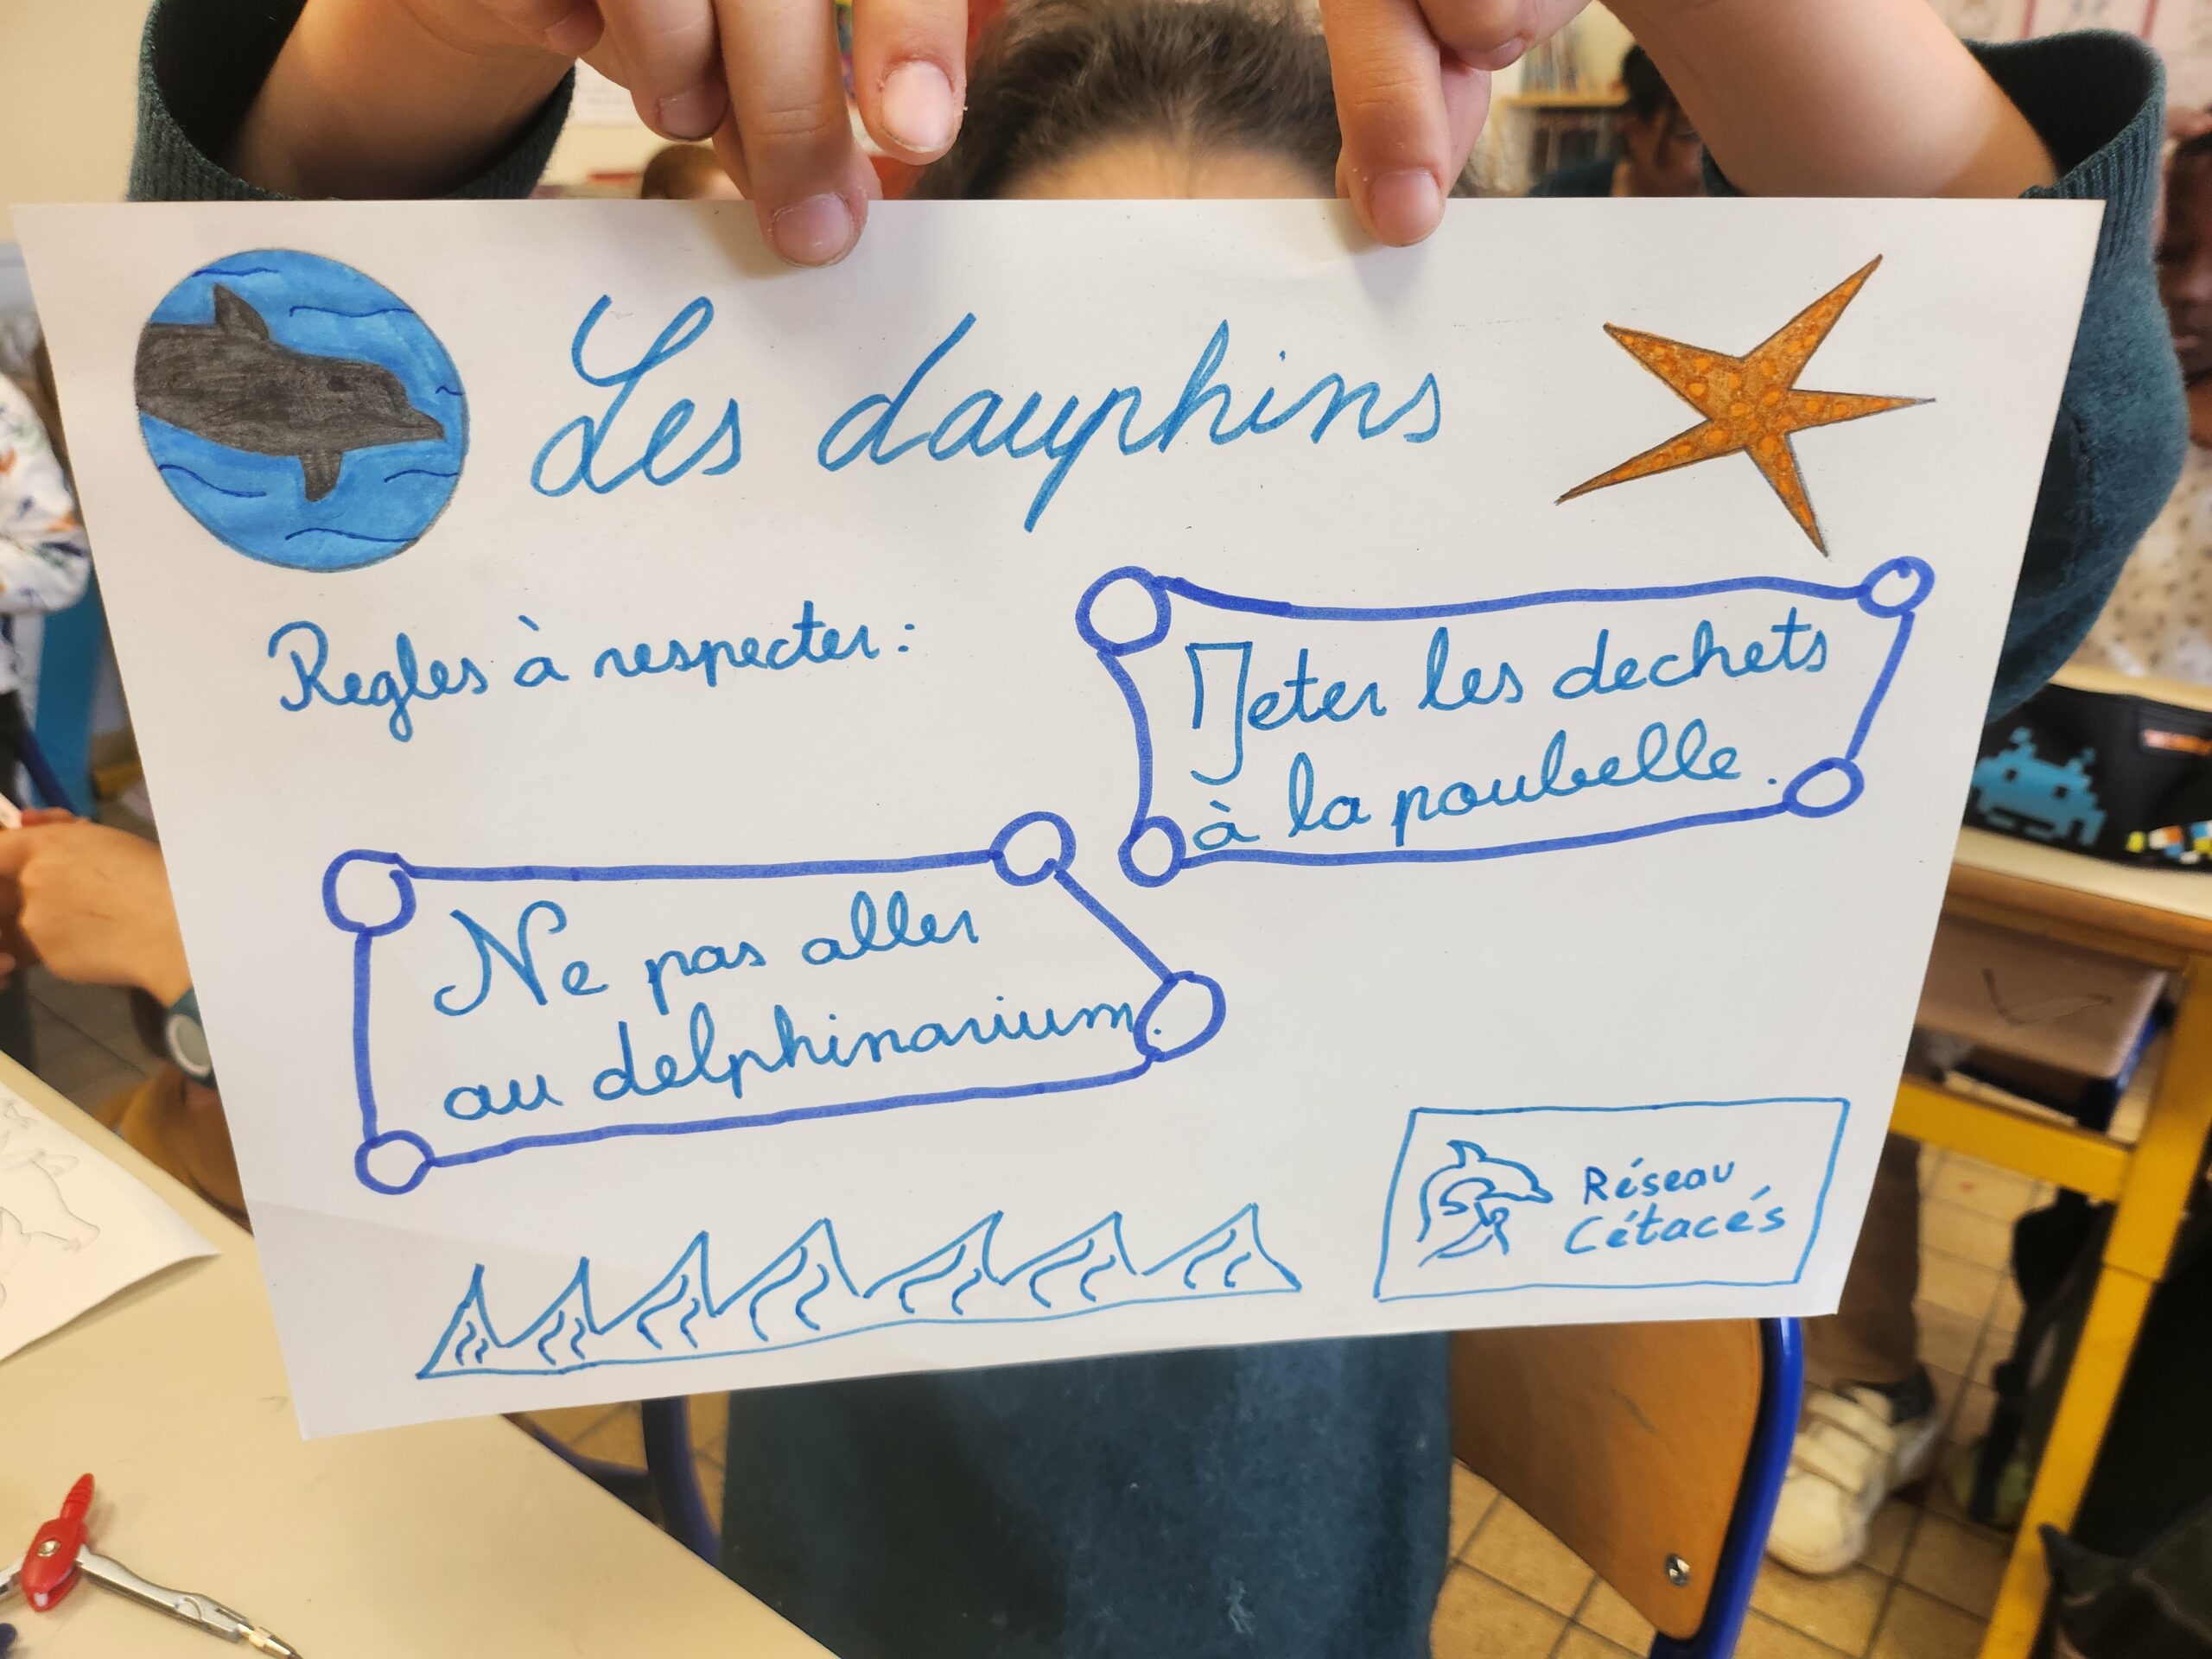 Les dauphins
Regles à respecter :
Jeter les dechets
à la poubelle.
Ne pas aller
au delphinarium.
Réseau
Cétacés